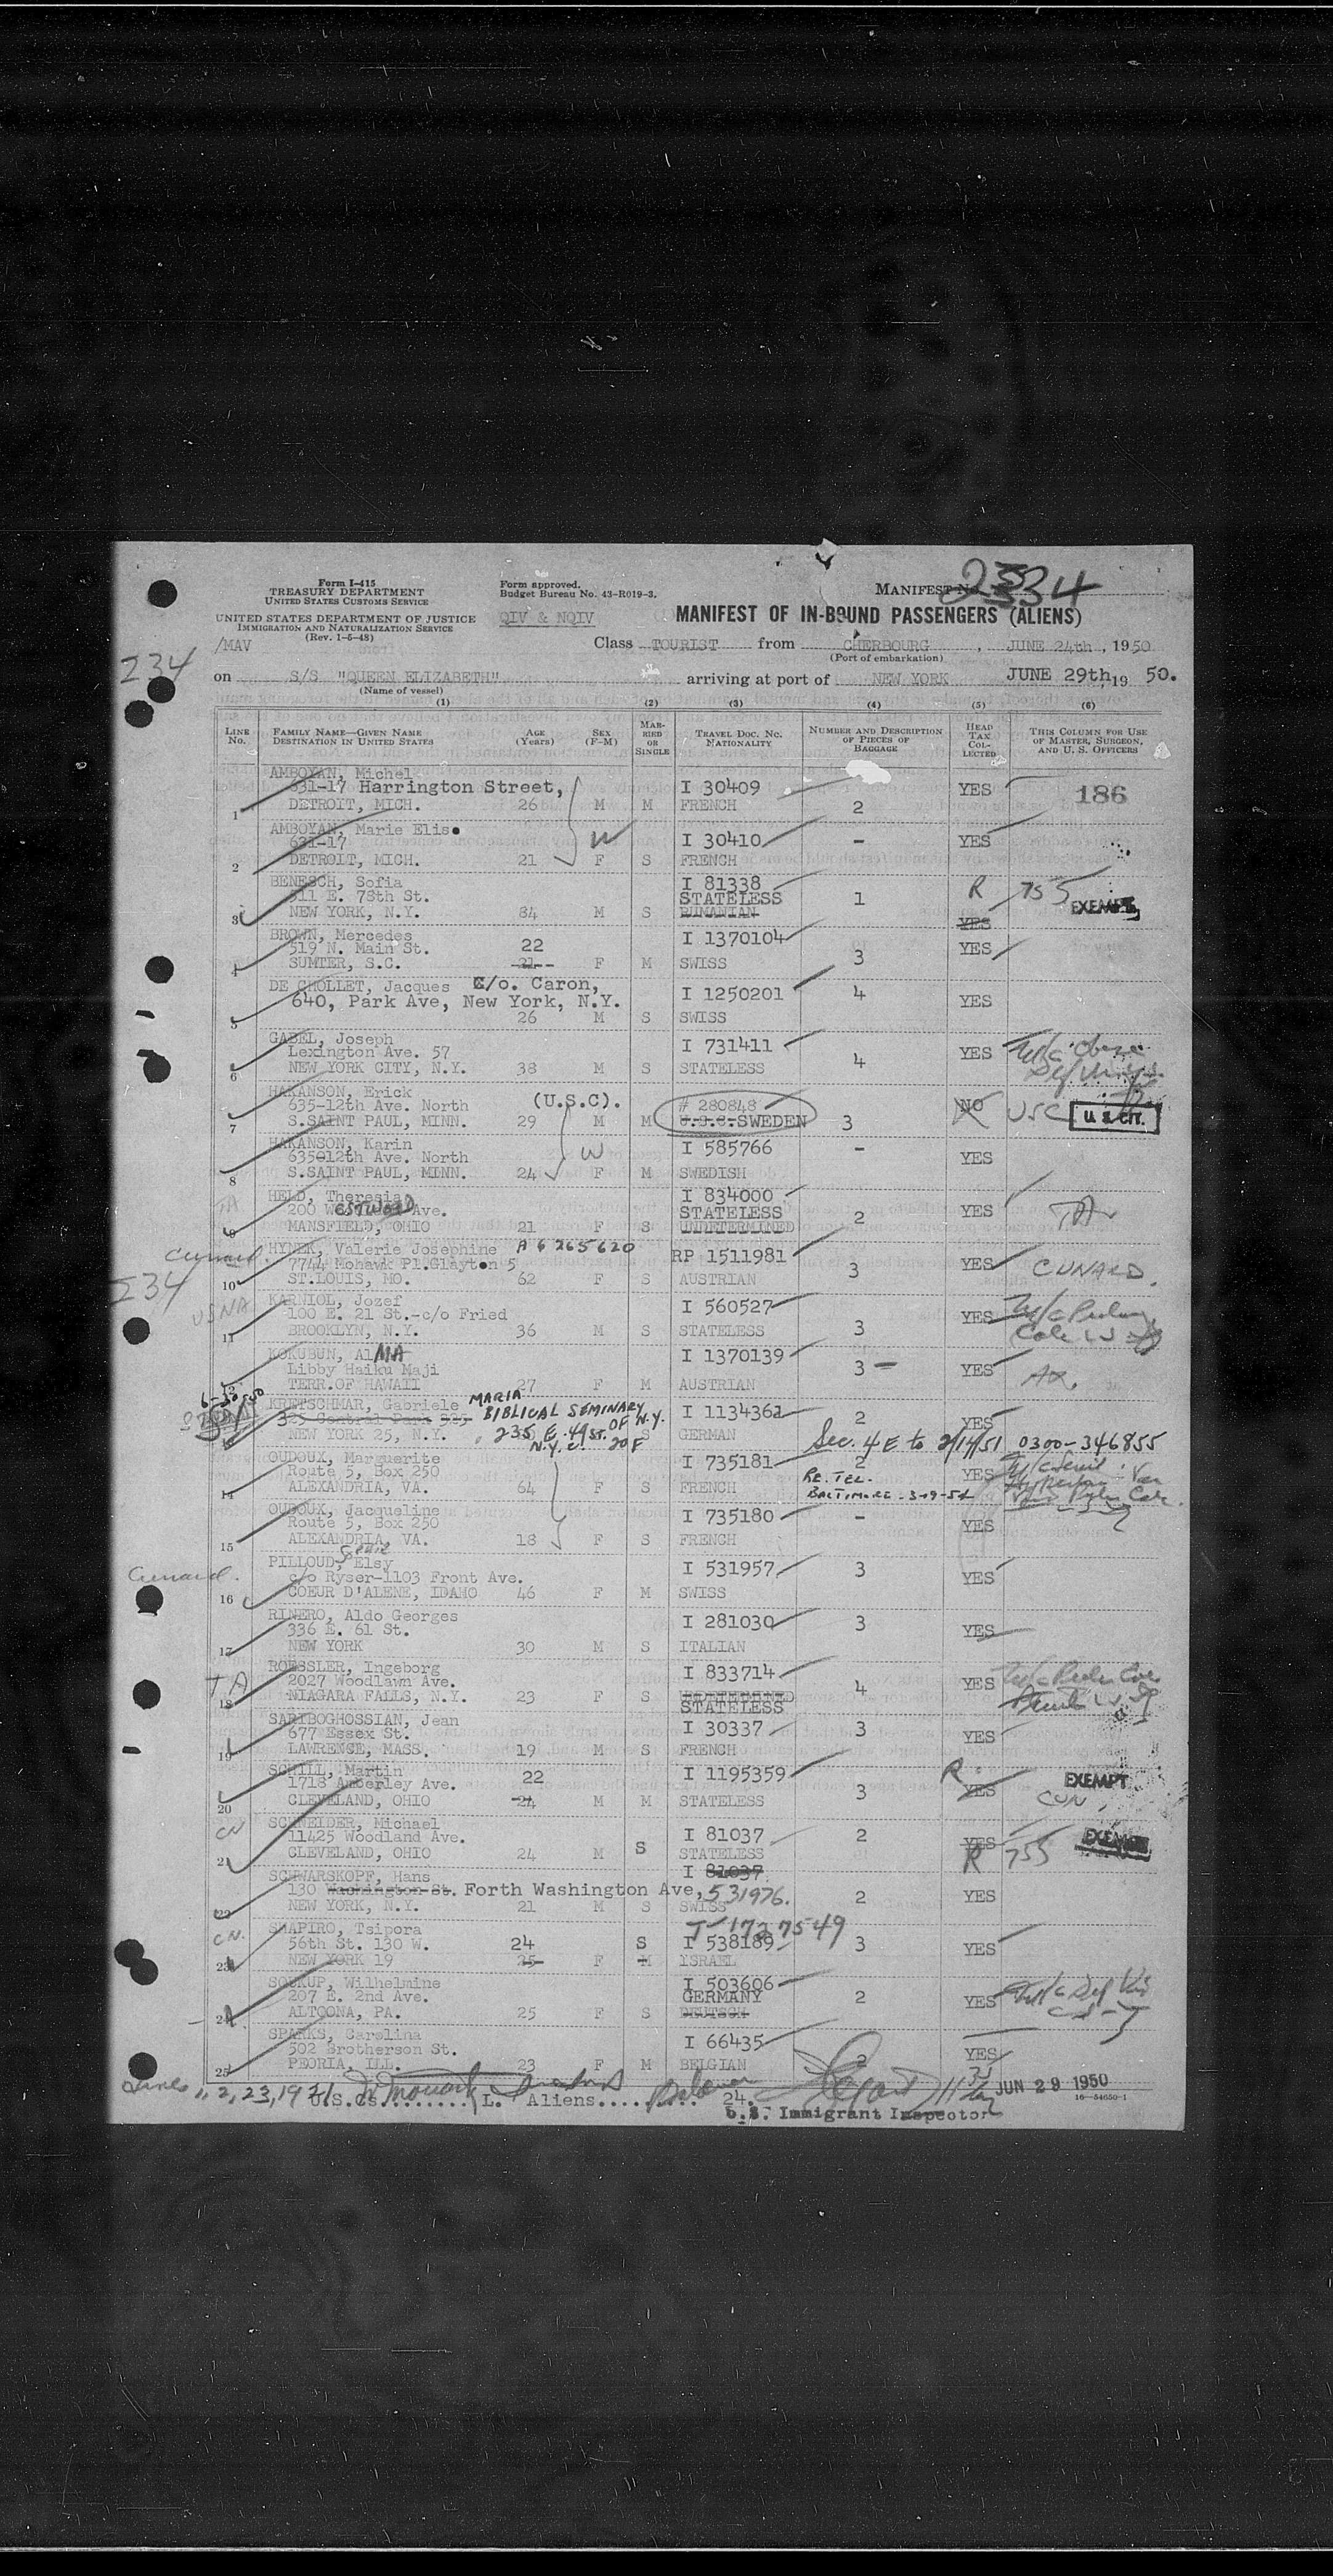 Form I-415
TREASURY DEPARTMENT
UNITED STATES CUSTOMS SERVICE
UNITED STATES DEPARTMENT OF JUSTICE
IMMIGRATION AND NATURALIZATION SERVICE
(Rev. 1-5-48)
Form approved.
Budget Bureau No. 43-R019-3.
QIV & NQIV
MANIFEST NO. 234
MANIFEST OF IN-BOUND PASSENGERS (ALIENS)
/MAV
234
Class TOURIST from CHERBOURG, JUNE 24th, 1950
(Port of embarkation)
on S/S "QUEEN ELIZABETH" arriving at port of NEW YORK JUNE 29th, 19 50.
(Name of vessel)
(1) (2) (3) (4) (5) (6)
LINE No. FAMILY NAME—GIVEN NAME DESTINATION IN UNITED STATES AGE (Years) SEX (F-M) MARRIED OR SINGLE TRAVEL DOC. NO. NATIONALITY NUMBER AND DESCRIPTION OF PIECES OF BAGGAGE HEAD TAX COLLECTED THIS COLUMN FOR USE OF MASTER, SURGEON, AND U. S. OFFICERS
AMBOYAN, Michel I 30409 YES 186
631-17 Harrington Street,
1 DETROIT, MICH. 26 M M FRENCH 2
AMBOYAN, Marie Elise I 30410 - YES
631-17 W
2 DETROIT, MICH. 21 F S FRENCH
BENESCH, Sofia I 81338 R 755 EXEMPT
511 E. 78th St. STATELESS 1
3 NEW YORK, N.Y. 84 M S RUMANIAN YES
BROWN, Mercedes I 1370104 YES
519 N. Main St. 22
4 SUMTER, S.C. 21 F M SWISS 3
DE CHOLLET, Jacques C/o. Caron, I 1250201 4 YES
640, Park Ave, New York, N.Y.
5 26 M S SWISS
GABEL, Joseph I 731411 YES
Lexington Ave. 57
6 NEW YORK CITY, N.Y. 38 M S STATELESS 4
HAKANSON, Erick (U.S.C). # 280848 NO USC U. S. CIT.
635-12th Ave. North
7 S.SAINT PAUL, MINN. 29 M M U.S.C. SWEDEN 3
HAKANSON, Karin I 585766 - YES
635012th Ave. North W
8 S.SAINT PAUL, MINN. 24 F M SWEDISH
TA HELD, Theresia I 834000 YES TA
200 WESTWOOD Ave. STATELESS
9 MANSFIELD, OHIO 21 F S UNDETERMINED 2
Cunard. HYNEK, Valerie Josephine A 6 265620 RP 1511981 YES CUNARD.
7744 Mohawk Pl.Glayton 5
234
10 ST.LOUIS, MO. 62 F S AUSTRIAN 3
USNA KARNIOL, Jozef I 560527 YES
100 E. 21 St.-c/o Fried
11 BROOKLYN, N.Y. 36 M S STATELESS 3
KOKUBUN, AlMA I 1370139 3 - YES
Libby Haiku Maji
12 TERR.OF HAWAII 27 F M AUSTRIAN
6-30-50
KRETSCHMAR, Gabriele MARIA I 1134361 2 YES
325 Central Park BIBLICAL SEMINARY OF N.Y.
NEW YORK 25, N.Y. 235 E. 49 ST. S GERMAN
N.Y.C. 20 F Sec. 4E to 2/14/51 0300-346855
OUDOUX, Marguerite I 735181 2 YES
Route 5, Box 250 RE. TEL.
14 ALEXANDRIA, VA. 64 F S FRENCH BALTIMORE - 3-19-51
OUDOUX, Jacqueline I 735180 - YES
Route 5, Box 250
15 ALEXANDRIA, VA. 18 F S FRENCH
Cunard. PILLOUD, Elsy I 531957 3 YES
c/o Ryser-1103 Front Ave.
16 COEUR D'ALENE, IDAHO 46 F M SWISS
RINERO, Aldo Georges I 281030 3 YES
336 E. 61 St.
17 NEW YORK 30 M S ITALIAN
TA ROESSLER, Ingeborg I 833714 YES
2027 Woodlawn Ave. 4
18 NIAGARA FALLS, N.Y. 23 F S UNDETERMINED
STATELESS
SARIBOGHOSSIAN, Jean I 30337 3 YES
677 Essex St.
19 LAWRENCE, MASS. 19 M S FRENCH
SCHILL, Martin I 1195359 R YES EXEMPT
1718 Amberley Ave. 22 CUN.
20 CLEVELAND, OHIO 24 M M STATELESS 3
CN SCHNEIDER, Michael I 81037 2 YES EXEMPT
11425 Woodland Ave. R 755
21 CLEVELAND, OHIO 24 M S STATELESS
SCHWARSKOPF, Hans I 81037
130 Washington St. Forth Washington Ave, 531976. 2 YES
22 NEW YORK, N.Y. 21 M S SWISS
CN. SHAPIRO, Tsipora I-1727549
56th St. 130 W. 24 S I 538189 3 YES
23 NEW YORK 19 25 F M ISRAEL
SOUKUP, Wilhelmine I 503606
207 E. 2nd Ave. GERMANY 2 YES
24 ALTOONA, PA. 25 F S DEUTSCH
SPARKS, Carolina I 66435
502 Brotherson St. 2 YES
25 PEORIA, ILL. 23 F M BELGIAN
U.S.Cs........ L. Aliens........ 24. JUN 29 1950
16-54650-1
U.S. Immigrant Inspector